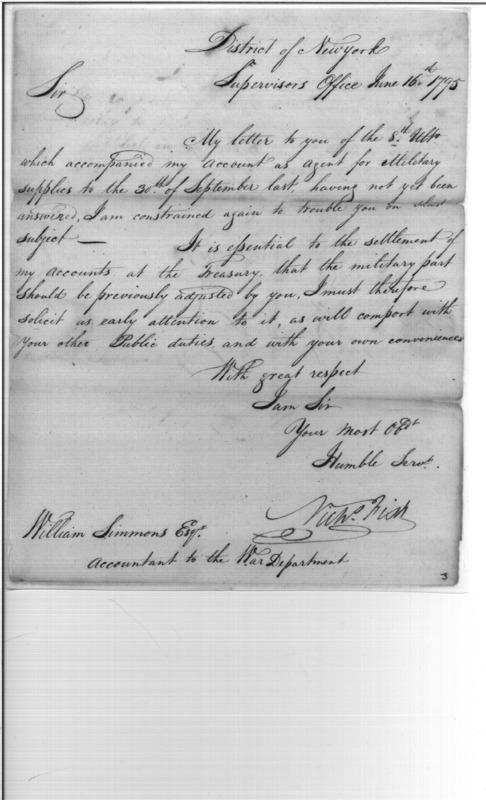 District of Newyork
Supervisors Office June 16th 1795
Sir
My letter to you of the 8th Ulto
which accompanied my account as agent for Military
supplies to the 30th of September last, having not yet been
answered, I am constrained again to trouble you on that
subject — It is essential to the settlement of
my accounts at the Treasury, that the military part
should be previously adjusted by you, I must therefore
solicit as early attention to it, as will comport with
your other Public duties, and with your own convenience
With great respect
I am Sir
Your most Obdt
Humble Servt.
Nichs Fish
William Simmons Esqr.
Accountant to the War Department
3